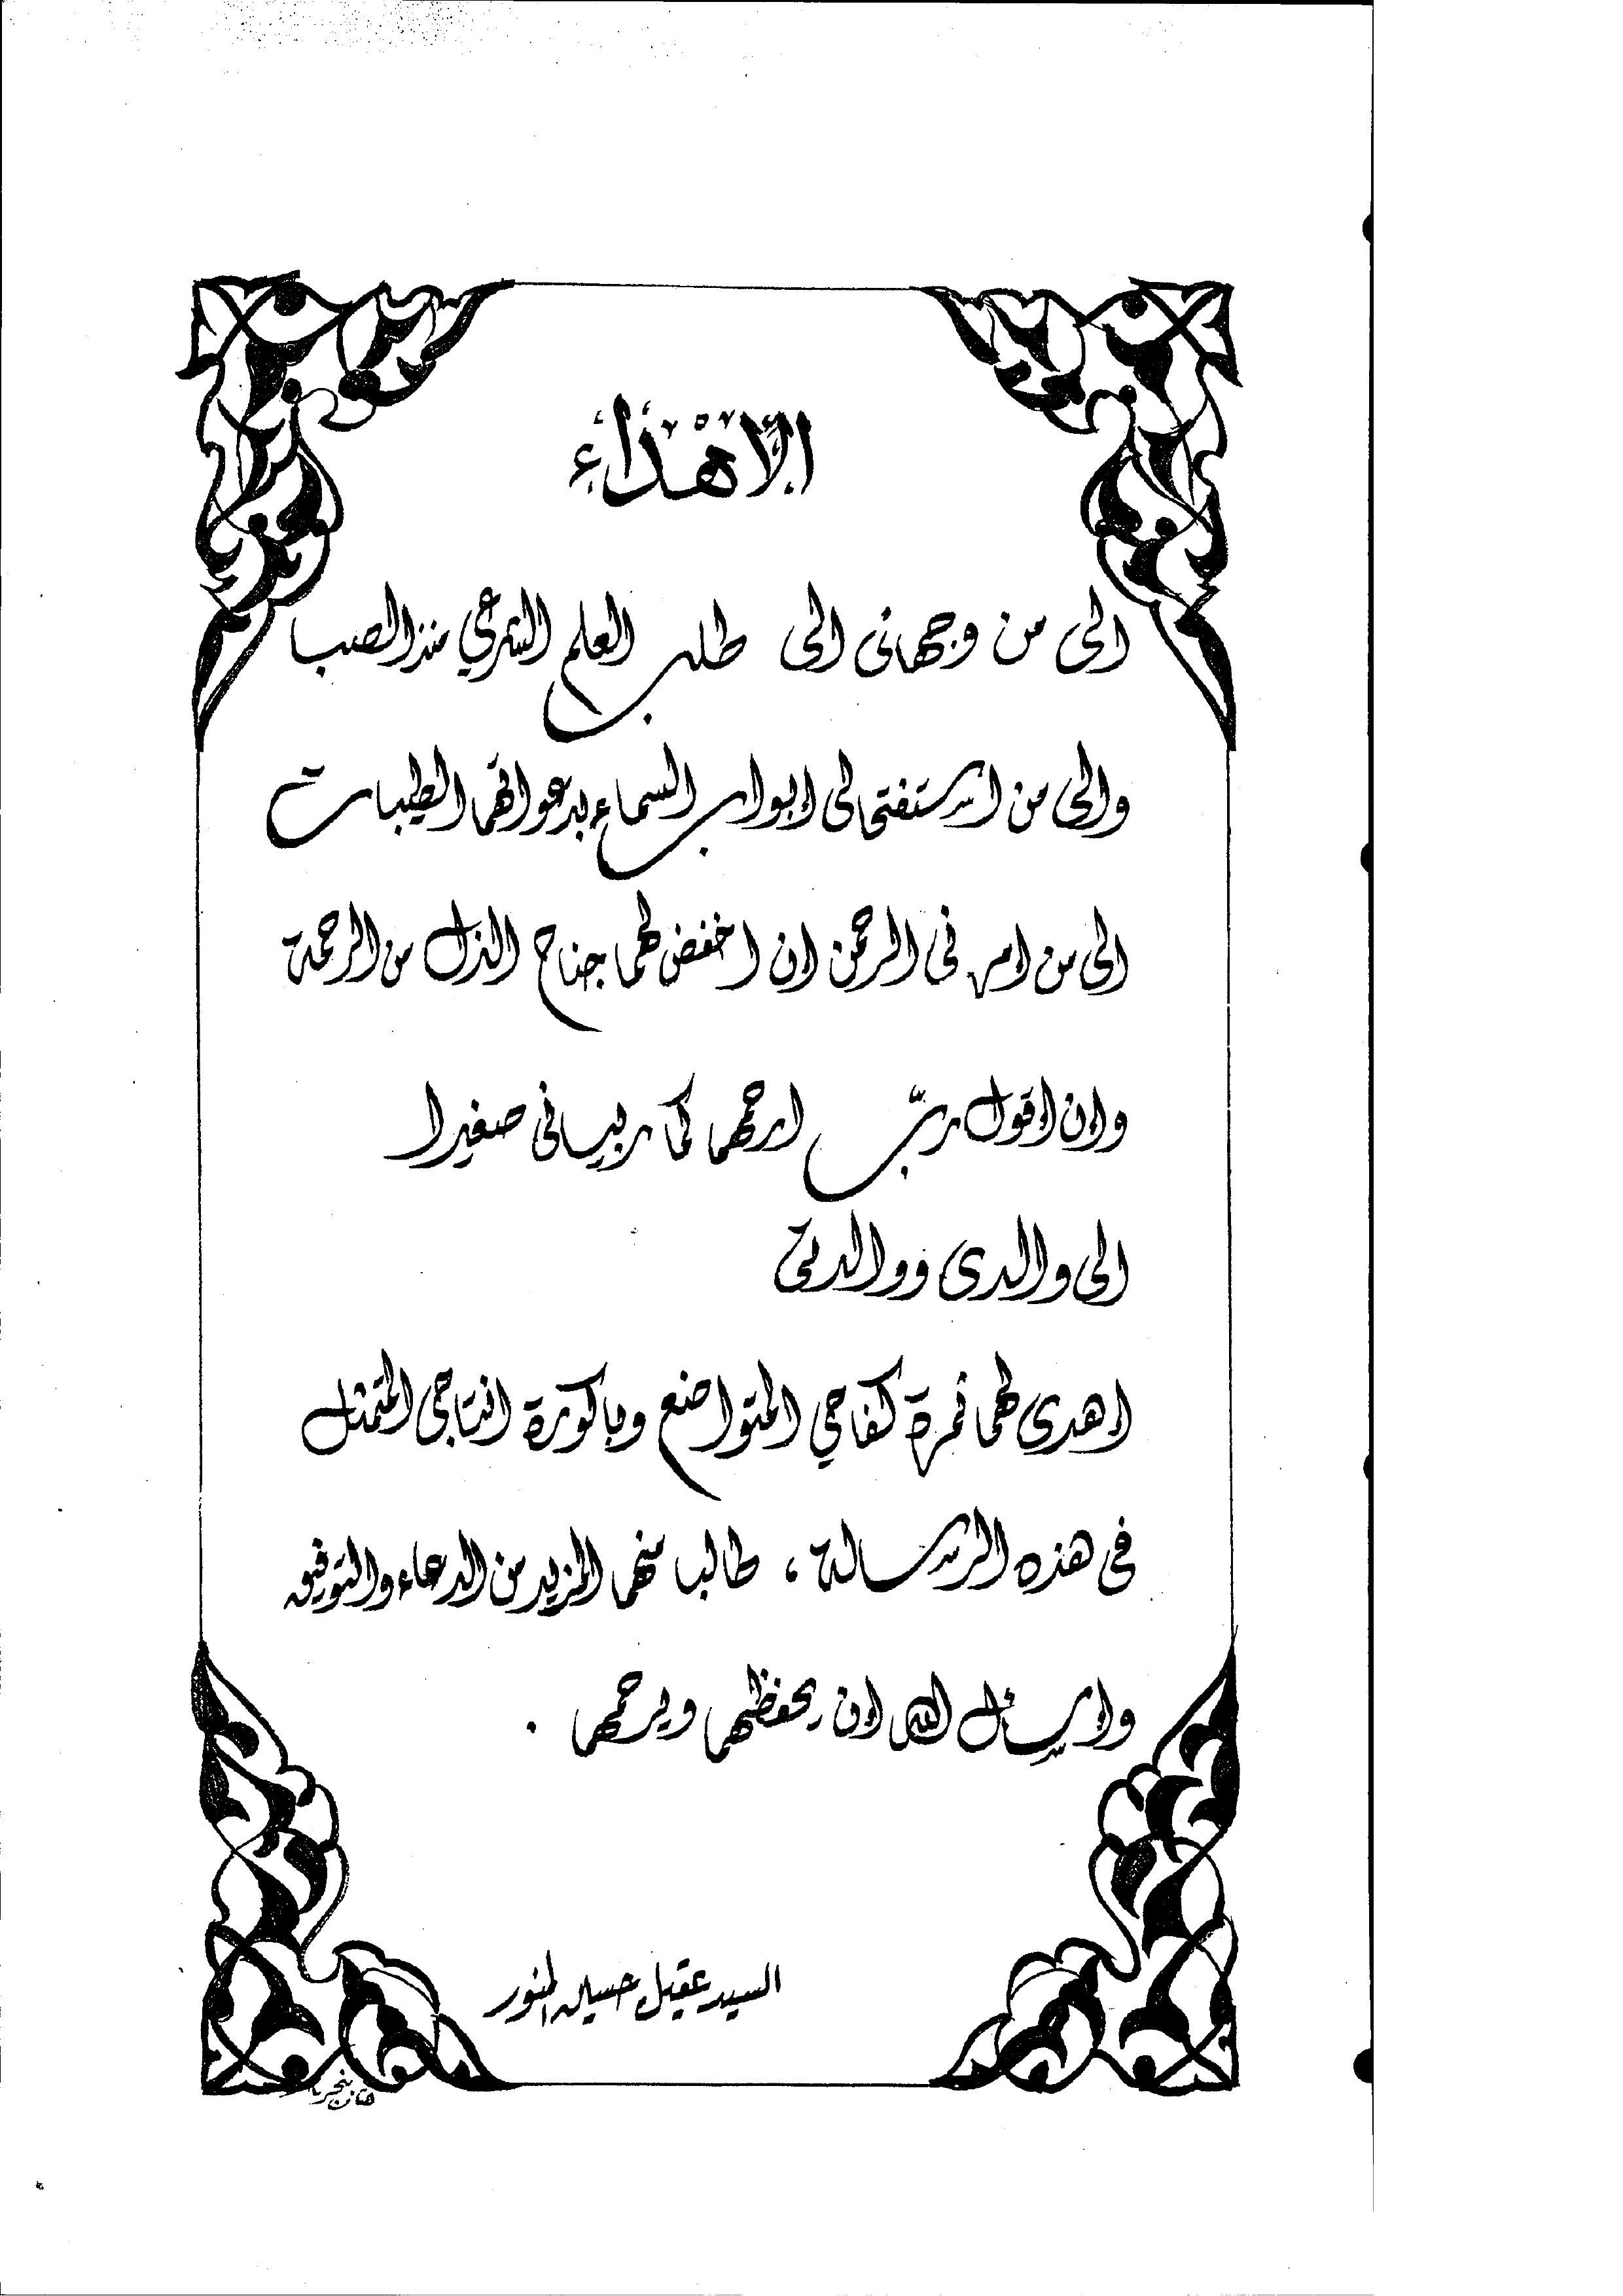 الإهْدَاءُ
الى من وجهانى الى طلب العلم الشرعي منذ الصبا
والى من استفتحا لى ابواب السماء بدعواتهما الطيبات
الى من امرنى الرحمن ان اخفض لهما جناح الذل من الرحمة
وان اقول ربّ ارحمهما كما ربيانى صغيرا
الى والدى ووالدتى
اهدى لهما ثمرة كفاحي المتواضع وباكورة انتاجى المتمثل
فى هذه الرسالة، طالبا منهما المزيد من الدعاء والتوفيق
واسأل الله ان يحفظهما ويرحمهما .
السيد عقيل حسين المنور